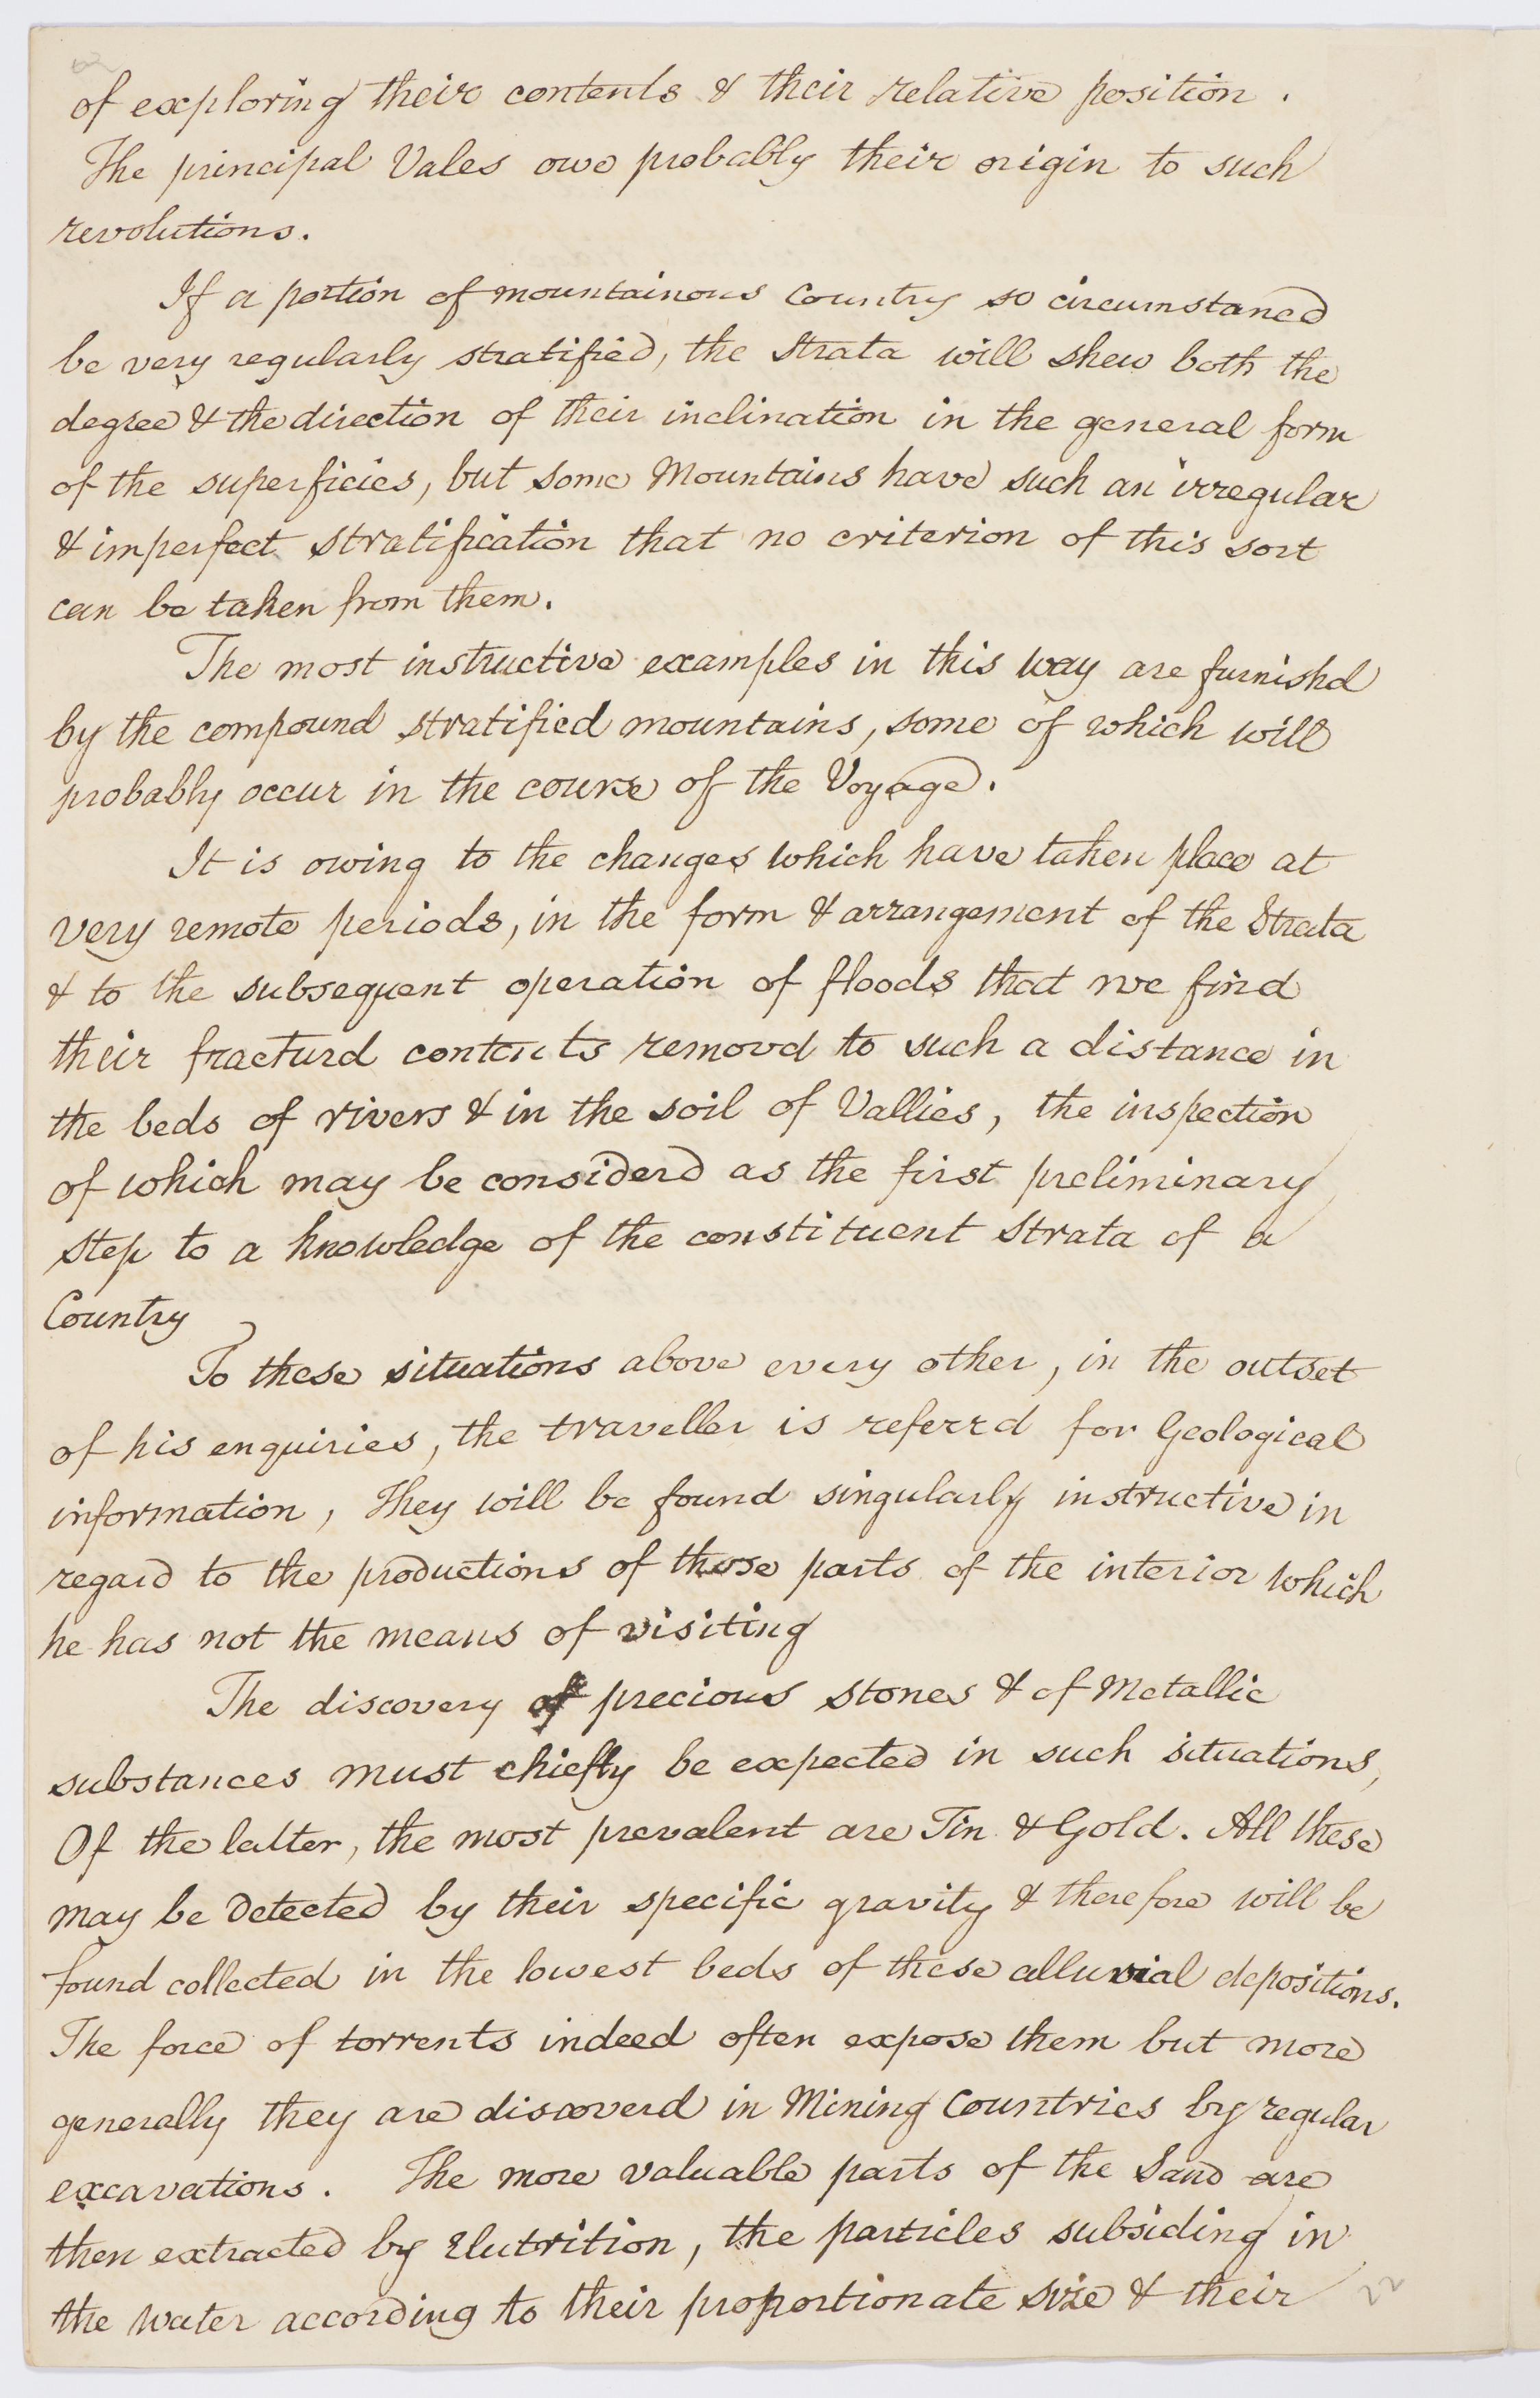 of exploring their contents & their relative position .
The principal Vales owe probably their origin to such
revolutions.
If a portion of mountainous Country so circumstancd
be very regularly stratified, the Strata will shew both the
degree & the direction of their inclination in the general form
of the superficies, but some Mountains have such an irregular
& imperfect stratification that no criterion of this sort
can be taken from them.
The most instructive examples in this way are furnishd
by the compound stratified mountains, some of which will
probably occur in the course of the Voyage.
It is owing to the changes which have taken place at
very remote periods, in the form & arrangement of the Strata
& to the subsequent operation of floods that we find
their fracturd contents removd to such a distance in
the beds of rivers & in the soil of Vallies, the inspection
of which may be considerd as the first preliminary
step to a knowledge of the constituent Strata of a
Country
To these situations above every other, in the outset
of his enquiries, the traveller is referrd for Geological
information, They will be found singularly instructive in
regard to the productions of those parts of the interior which
he has not the means of visiting
The discovery of precious stones & of Metallic
substances must chiefly be expected in such situations,
Of the latter, the most prevalent are Tin & Gold. All these
may be detected by their specific gravity & therefore will be
found collected in the lowest beds of these alluvial depositions.
The force of torrents indeed often expose them but more
generally they are discoverd in Mining Countries by regular
excavations. The more valuable parts of the Sand are
then extracted by Elutrition, the particles subsiding in
the water according to their proportionate size & their
22